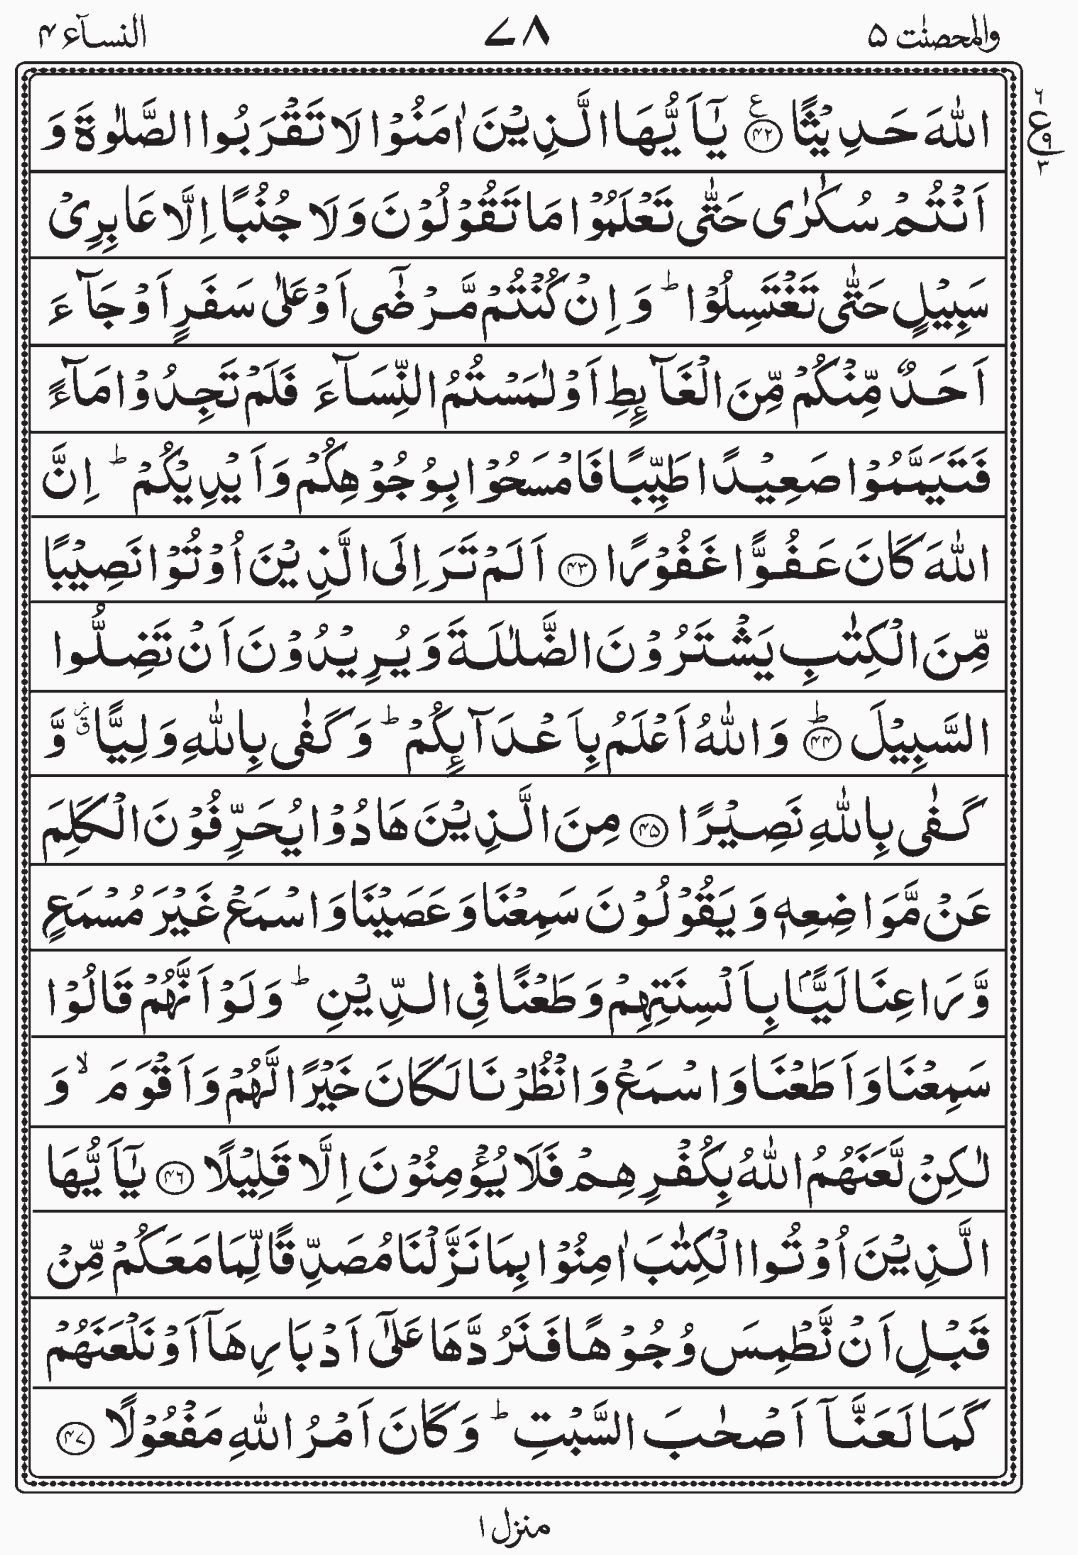 والمحصنٰت ۵
۷۸
النسآء ۴
اللّٰهَ حَدِيْثًا ۴۲ ع يٰۤاَيُّهَا الَّذِيْنَ اٰمَنُوْا لَا تَقْرَبُوا الصَّلٰوةَ وَ
ع
۶
۹
۳
اَنْتُمْ سُكٰرٰى حَتّٰى تَعْلَمُوْا مَا تَقُوْلُوْنَ وَلَا جُنُبًا اِلَّا عَابِرِىْ
سَبِيْلٍ حَتّٰى تَغْتَسِلُوْا ؕ وَ اِنْ كُنْتُمْ مَّرْضٰۤى اَوْ عَلٰى سَفَرٍ اَوْ جَآءَ
اَحَدٌ مِّنْكُمْ مِّنَ الْغَآٮِٕطِ اَوْ لٰمَسْتُمُ النِّسَآءَ فَلَمْ تَجِدُوْا مَآءً
فَتَيَمَّمُوْا صَعِيْدًا طَيِّبًا فَامْسَحُوْا بِوُجُوْهِكُمْ وَ اَيْدِيْكُمْ ؕ اِنَّ
اللّٰهَ كَانَ عَفُوًّا غَفُوْرًا ۴۳ اَلَمْ تَرَ اِلَى الَّذِيْنَ اُوْتُوْا نَصِيْبًا
مِّنَ الْكِتٰبِ يَشْتَرُوْنَ الضَّلٰلَةَ وَ يُرِيْدُوْنَ اَنْ تَضِلُّوا
السَّبِيْلَ ؕ ۴۴ وَ اللّٰهُ اَعْلَمُ بِاَعْدَآٮِٕكُمْ ؕ وَ كَفٰى بِاللّٰهِ وَلِيًّا ق وَّ
كَفٰى بِاللّٰهِ نَصِيْرًا ۴۵ مِنَ الَّذِيْنَ هَادُوْا يُحَرِّفُوْنَ الْكَلِمَ
عَنْ مَّوَاضِعِهٖ وَ يَقُوْلُوْنَ سَمِعْنَا وَ عَصَيْنَا وَ اسْمَعْ غَيْرَ مُسْمَعٍ
وَّ رَاعِنَا لَيًّۢا بِاَلْسِنَتِهِمْ وَ طَعْنًا فِى الدِّيْنِ ؕ وَ لَوْ اَنَّهُمْ قَالُوْا
سَمِعْنَا وَ اَطَعْنَا وَ اسْمَعْ وَ انْظُرْنَا لَكَانَ خَيْرًا لَّهُمْ وَ اَقْوَمَ ۙ وَ
لٰكِنْ لَّعَنَهُمُ اللّٰهُ بِكُفْرِهِمْ فَلَا يُؤْمِنُوْنَ اِلَّا قَلِيْلًا ۴۶ يٰۤاَيُّهَا
الَّذِيْنَ اُوْتُوا الْكِتٰبَ اٰمِنُوْا بِمَا نَزَّلْنَا مُصَدِّقًا لِّمَا مَعَكُمْ مِّنْ
قَبْلِ اَنْ نَّطْمِسَ وُجُوْهًا فَنَرُدَّهَا عَلٰۤى اَدْبَارِهَاۤ اَوْ نَلْعَنَهُمْ
كَمَا لَعَنَّاۤ اَصْحٰبَ السَّبْتِ ؕ وَ كَانَ اَمْرُ اللّٰهِ مَفْعُوْلًا ۴۷
منزل ۱